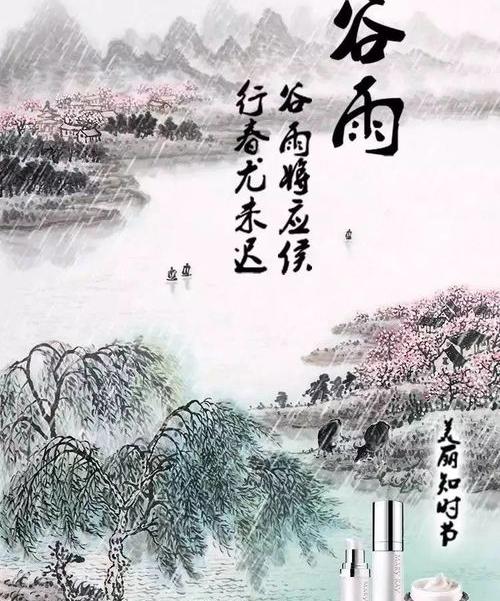 谷雨
谷雨将应侯
行春尤未迟
美丽知时节
MARY KAY